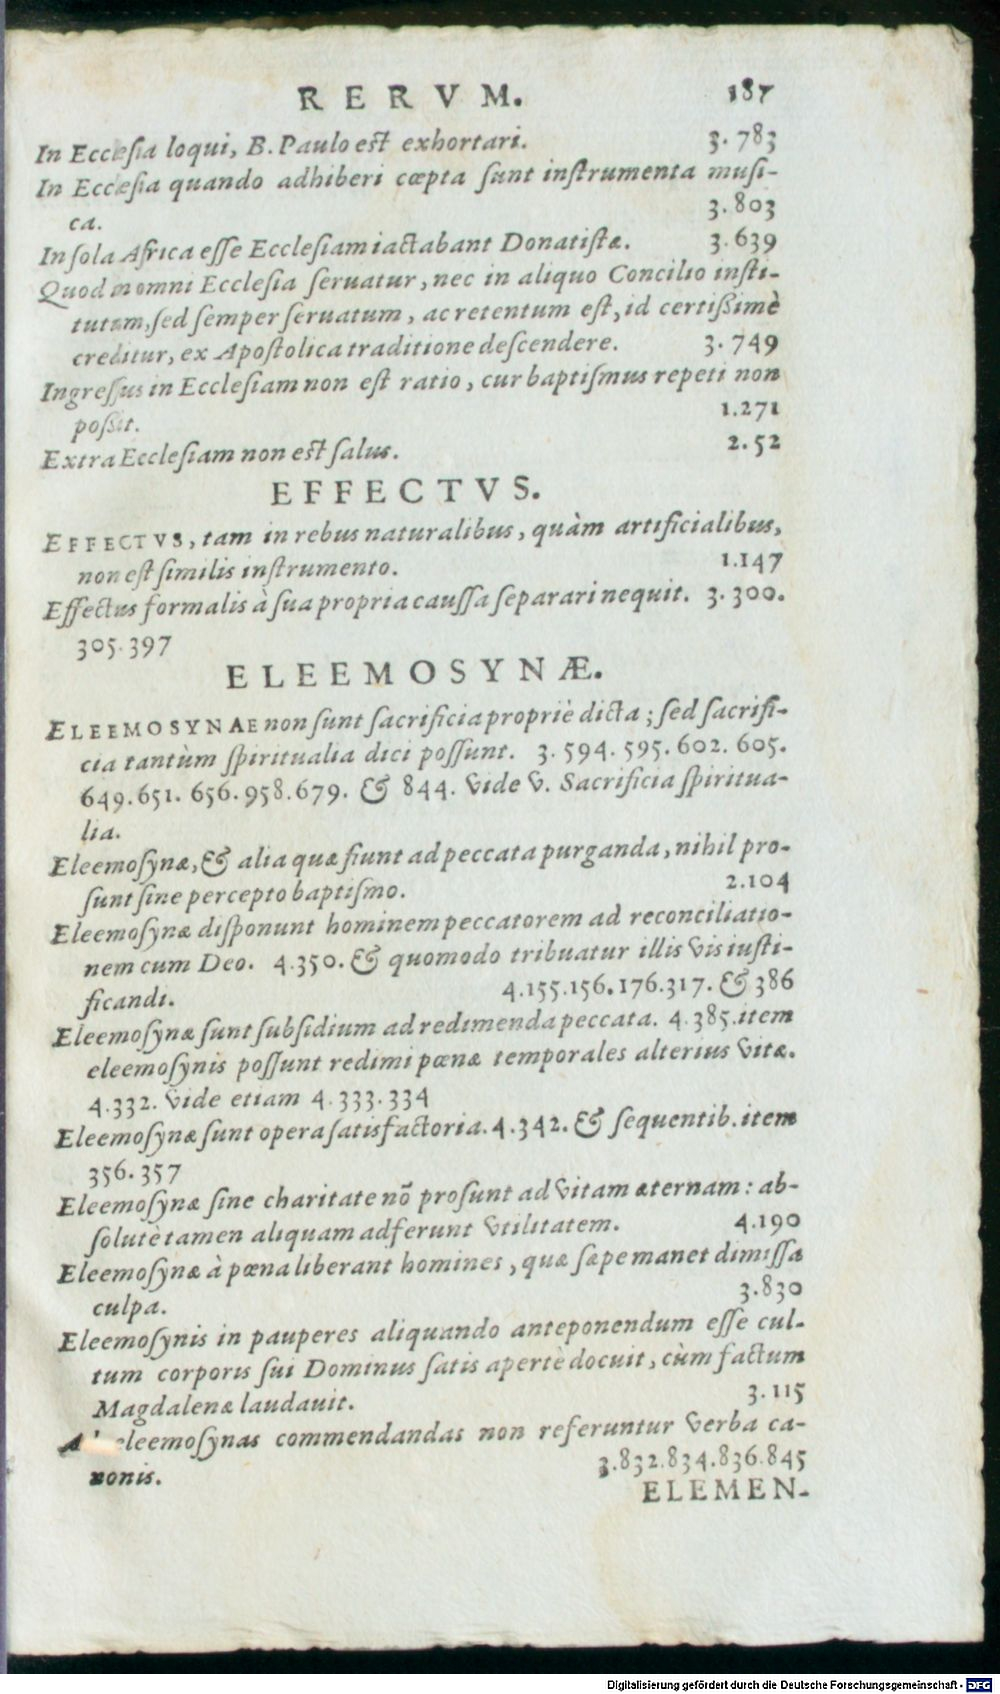 RERVM. 187
In Ecclesia loqui, B. Paulo est exhortari. 3.783
In Ecclesia quando adhiberi cœpta sunt instrumenta musi-
ca. 3.803
In sola Africa esse Ecclesiam iactabant Donatistæ. 3.639
Quod in omni Ecclesia seruatur, nec in aliquo Concilio insti-
tutum, sed semper seruatum, ac retentum est, id certißimè
creditur, ex Apostolica traditione descendere. 3.749
Ingressus in Ecclesiam non est ratio, cur baptismus repeti non
poßit. 1.271
Extra Ecclesiam non est salus. 2.52
EFFECTVS.
EFFECTVS, tam in rebus naturalibus, quàm artificialibus,
non est similis instrumento. 1.147
Effectus formalis à sua propria caussa separari nequit. 3.300.
305.397
ELEEMOSYNÆ.
ELEEMOSYNAE non sunt sacrificia propriè dicta; sed sacrifi-
cia tantùm spiritualia dici possunt. 3.594.595.602.605.
649.651.656.958.679. & 844. vide v. Sacrificia spiritua-
lia.
Eleemosynæ, & alia quæ fiunt ad peccata purganda, nihil pro-
sunt sine percepto baptismo. 2.104
Eleemosynæ disponunt hominem peccatorem ad reconciliatio-
nem cum Deo. 4.350. & quomodo tribuatur illis vis iusti-
ficandi. 4.155.156.176.317. & 386
Eleemosynæ sunt subsidium ad redimenda peccata. 4.385. item
eleemosynis possunt redimi pœnæ temporales alterius vitæ.
4.332. vide etiam 4.333.334
Eleemosynæ sunt opera satisfactoria. 4.342. & sequentib. item
356.357
Eleemosynæ sine charitate nõ prosunt ad vitam æternam: ab-
solutè tamen aliquam adferunt vtilitatem. 4.190
Eleemosynæ à pœna liberant homines, quæ sæpe manet dimissa
culpa. 3.830
Eleemosynis in pauperes aliquando anteponendum esse cul-
tum corporis sui Dominus satis apertè docuit, cùm factum
Magdalenæ laudauit. 3.115
eleemosynas commendandas non referuntur verba ca-
nonis. 3.832.834.836.845
ELEMEN-
Digitalisierung gefördert durch die Deutsche Forschungsgemeinschaft - DFG